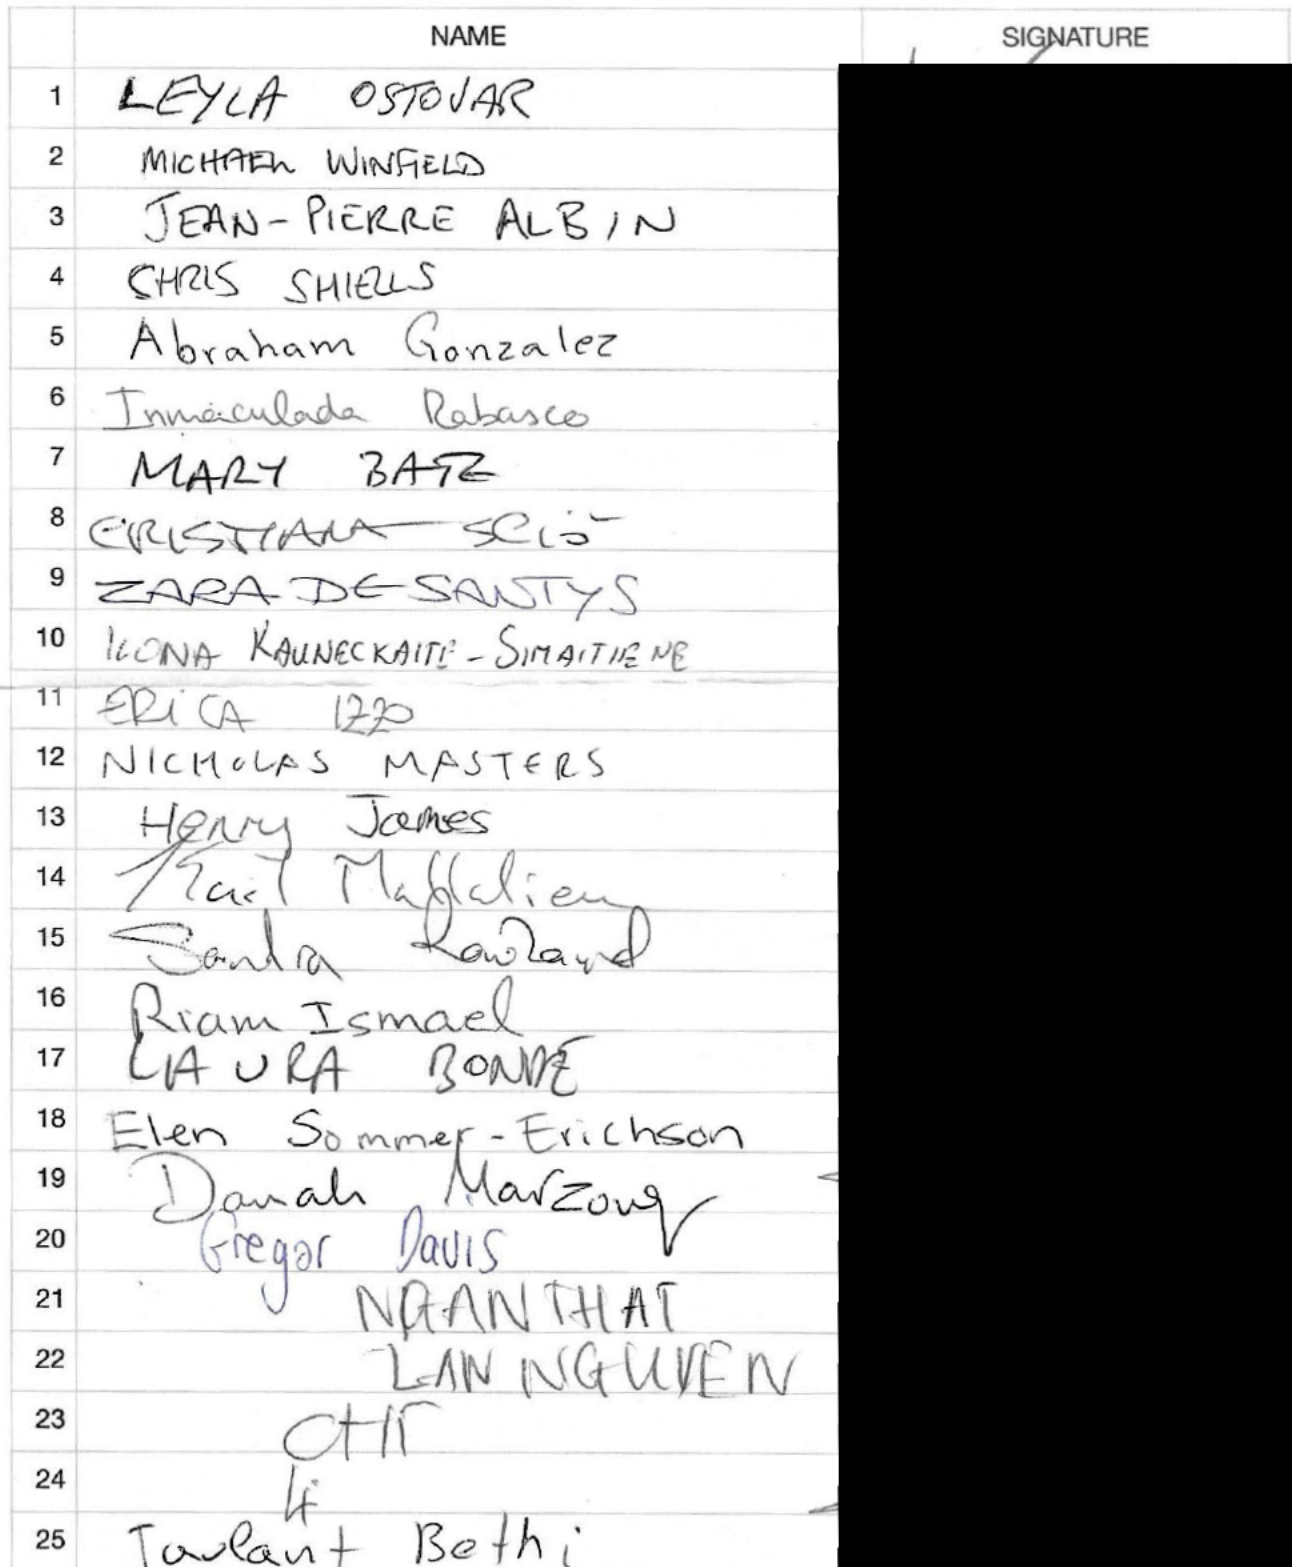 NAME SIGNATURE
1 LEYLA OSTOVAR
2 MICHAEL WINFIELD
3 JEAN-PIERRE ALBIN
4 CHRIS SHIELLS
5 Abraham Gonzalez
6 Inmaculada Rabasco
7 MARY BATE
8 CRISTIANA SCIÒ
9 ZARA DE SANTYS
10 ILONA KAUNECKAITE-SIMAITIENE
11 ERICA IZZO
12 NICHOLAS MASTERS
13 Henry James
14
15 Sandra Rowland
16 Riam Ismael
17 LAURA BONDE
18 Elen Sommer-Erichson
19 Danah Marzouq
20 Gregor Davis
21 NGAN THAT
22 LAN NGUYEN
23
24
25 Taulant Bethi